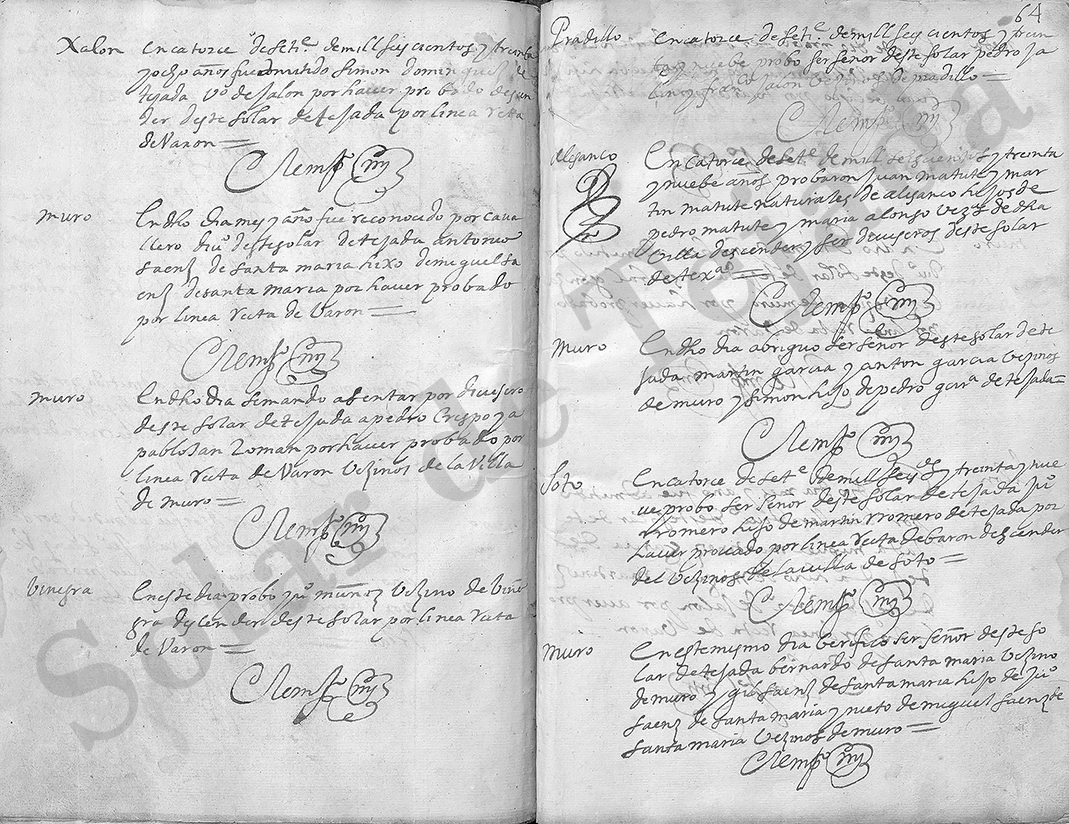 Xalon
En catorce de setᵉ. de mill seys cientos y treinta
y ocho años fue admitido Simon dominguez de
tejada vº de Jalon por haver probado desçen
der deste solar de tejada por linea recta
de Varon
Clemᵗᵉ
muro
En dho dia mes y año fue reconocido por cava
llero diuº deste solar de tejada antonio
saenz de santa maria hixo de miguel sa
enz de santa maria por haver probado
por linea recta de Varon
Clemᵗᵉ
muro
En dho dia se mando asentar por diuisero
deste solar de tejada a pedro crespo y a
pablo san Roman por haver probado por
linea recta de Varon vezinos de la Villa
de muro
Clemᵗᵉ
Vinegra
En este dia probo juº muñoz vezino de viñe
gra desçender deste solar por linea recta
de Varon
Clemᵗᵉ
64
Pradillo
En catorce de setᵉ. de mill seys cientos y trein
ta y nuebe probo ser señor deste solar pedro
de pradillo
Clemᵗᵉ
Alesanco
En catorce de setᵉ de mill seiscientos y treinta
y nuebe años probaron Juan matute y mar
tin matute naturales de alesanco hijos de
pedro matute y maria alonso vezºˢ de dha
Villa descender y ser diuiseros deste solar
de texᵃ
Clemᵗᵉ
muro
En dho dia abriguo ser señor deste solar de te
jada martin garcia y anton garcia vezinos
de muro y simon hijo de pedro garᵃ de tejada
Clemᵗᵉ
soto
En catorce de setᵉ de mill seysº y treinta y nue
ve probo ser señor deste solar de tejada juº
rromero hijo de martin rromero de tejada por
haver provado por linea recta de baron descender
del vezinos de la villa de soto
Clemᵗᵉ
muro
En este mysmo dia berifico ser señor deste so
lar de tejada bernardo de santa maria vezino
de muro y juº saenz de santa maria hijo de juº
saenz de santa maria y nieto de miguel saenz de
santa maria vezinos de muro
Clemᵗᵉ
Solar de Tejada